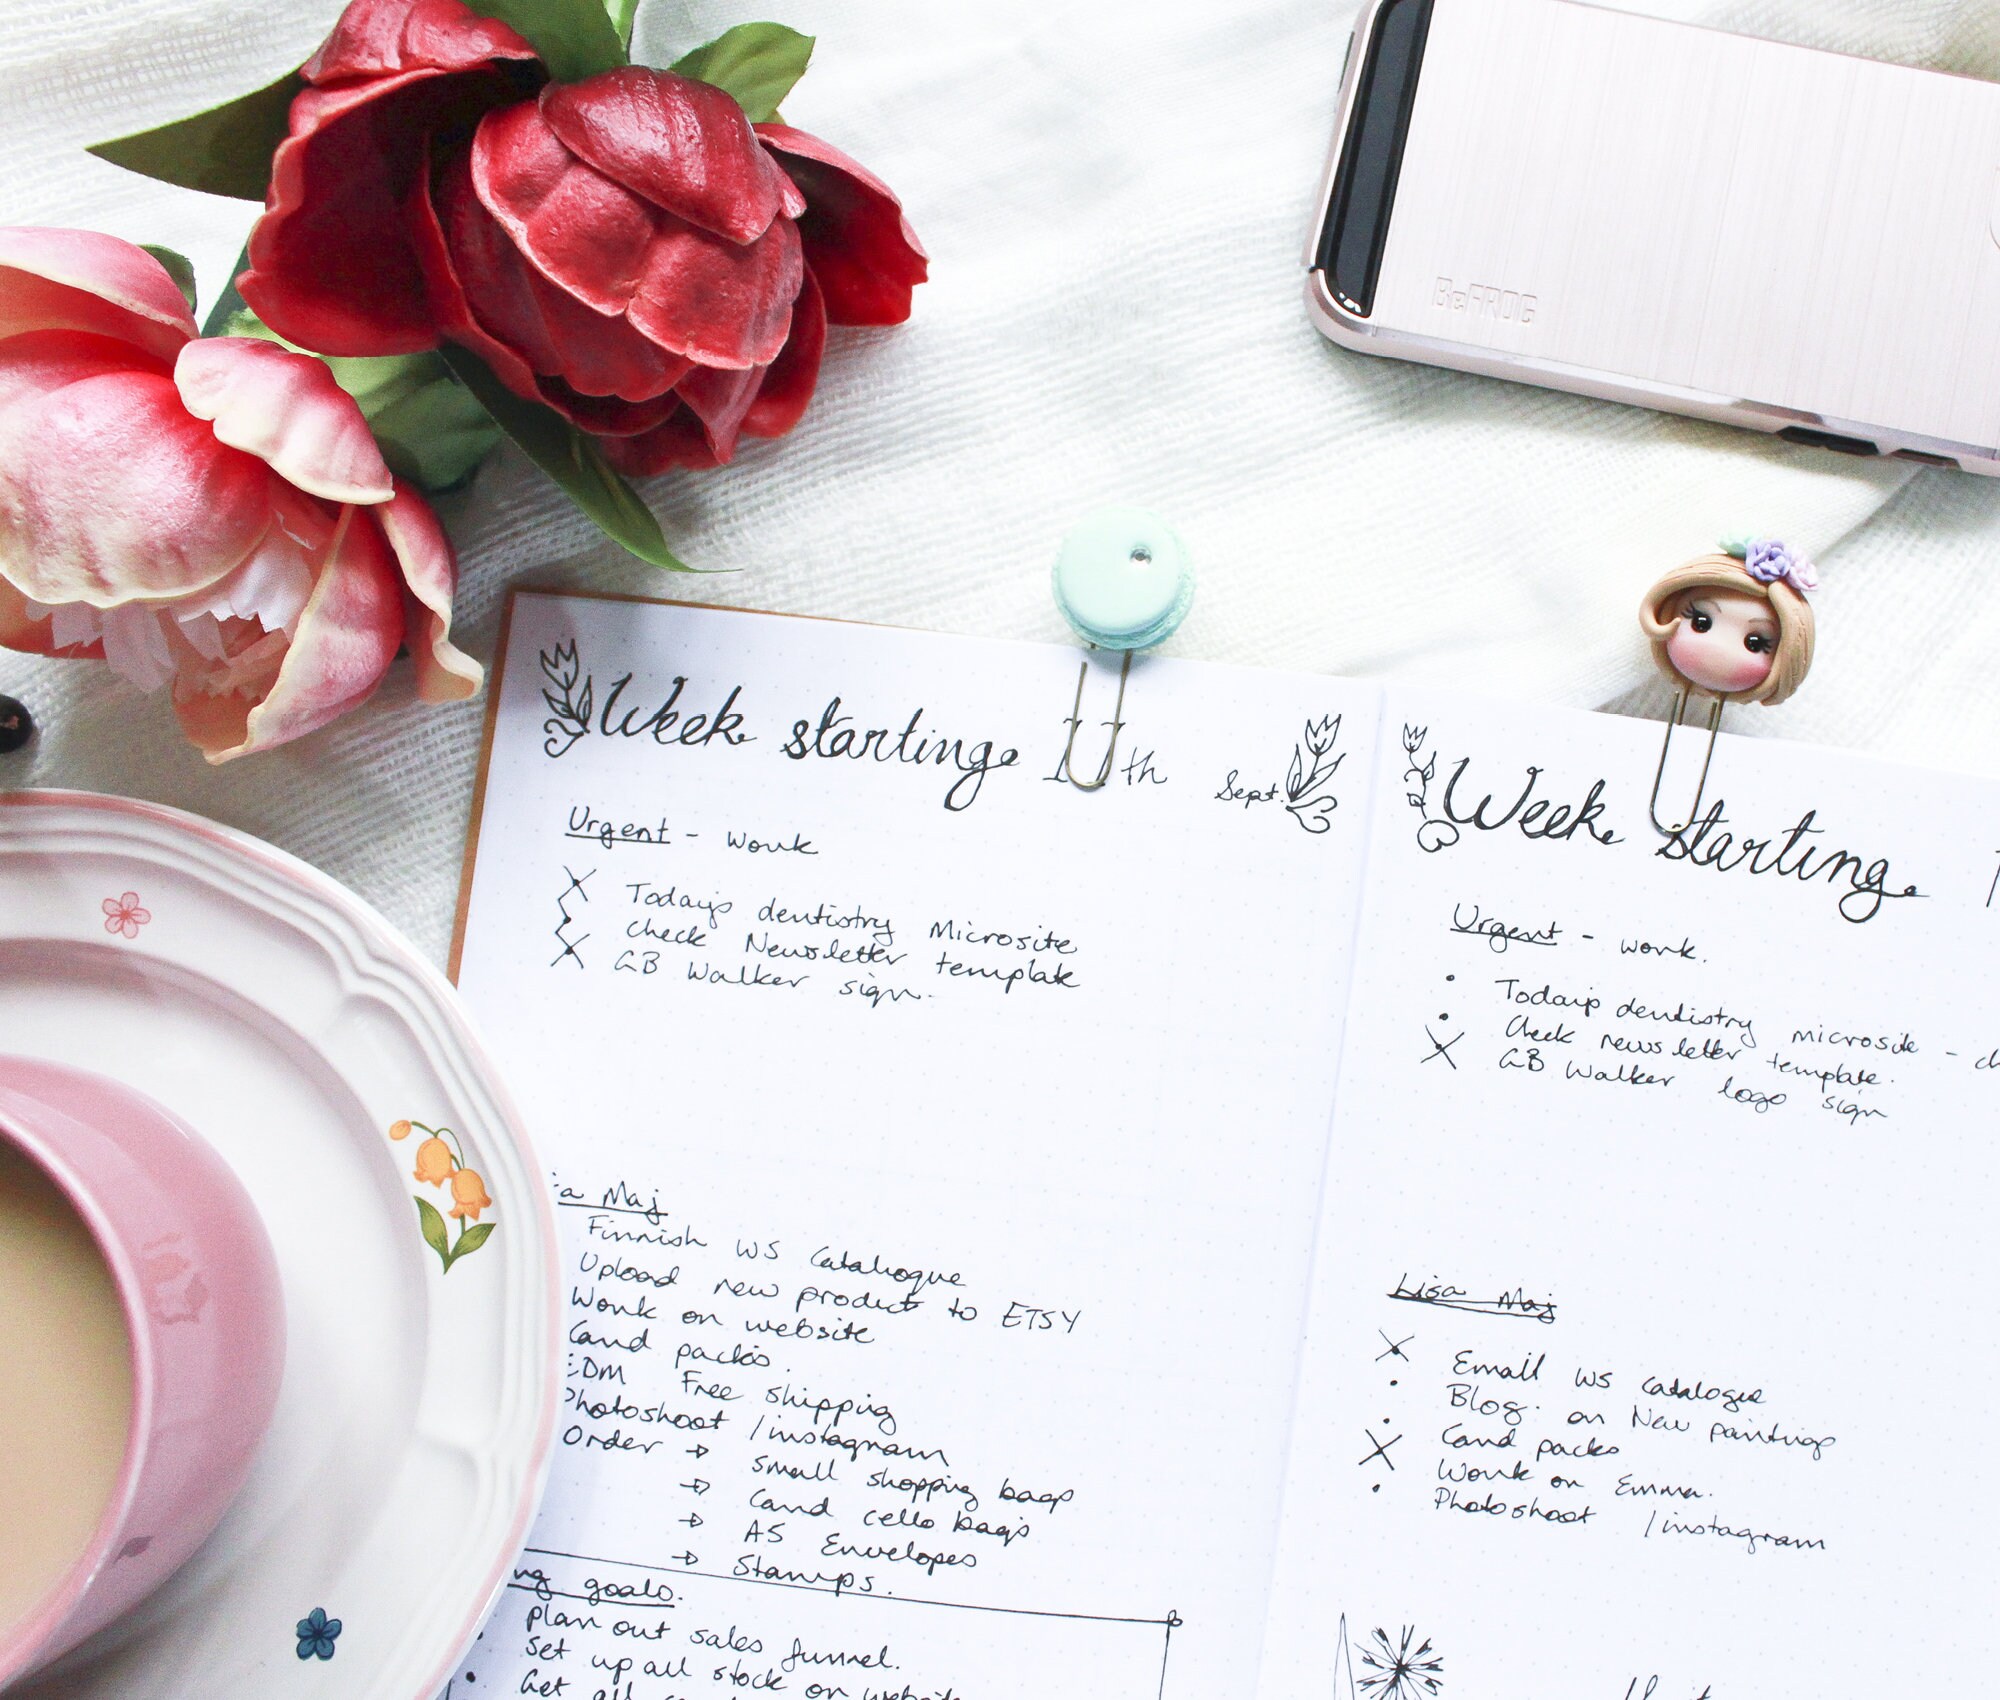 ReFROG
Week starting 11th Sept.
Urgent - work
Today's dentistry Microsite
Check Newsletter template
GB Walker sign.
a Maj
Finnish WS Catalogue
Upload new product to ETSY
Work on website
Card packs.
EDM Free shipping
Photoshoot / instagram
Order → small shopping bags
→ Card cello bags
→ A5 Envelopes
→ Stamps.
goals.
plan out sales funnel.
Set up all stock on website
Get all
Week starting
Urgent - work.
Today's dentistry microsite -
Check newsletter template.
GB Walker logo sign
Lisa Maj
Email WS Catalogue
Blog. on New paintings
Card packs
Work on Emma.
Photoshoot / instagram